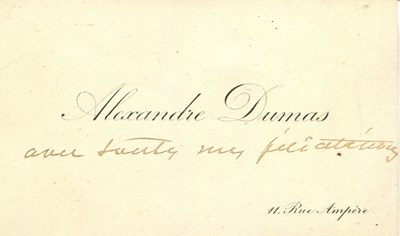 Alexandre Dumas
avec toutes mes félicitations
11. Rue Ampère